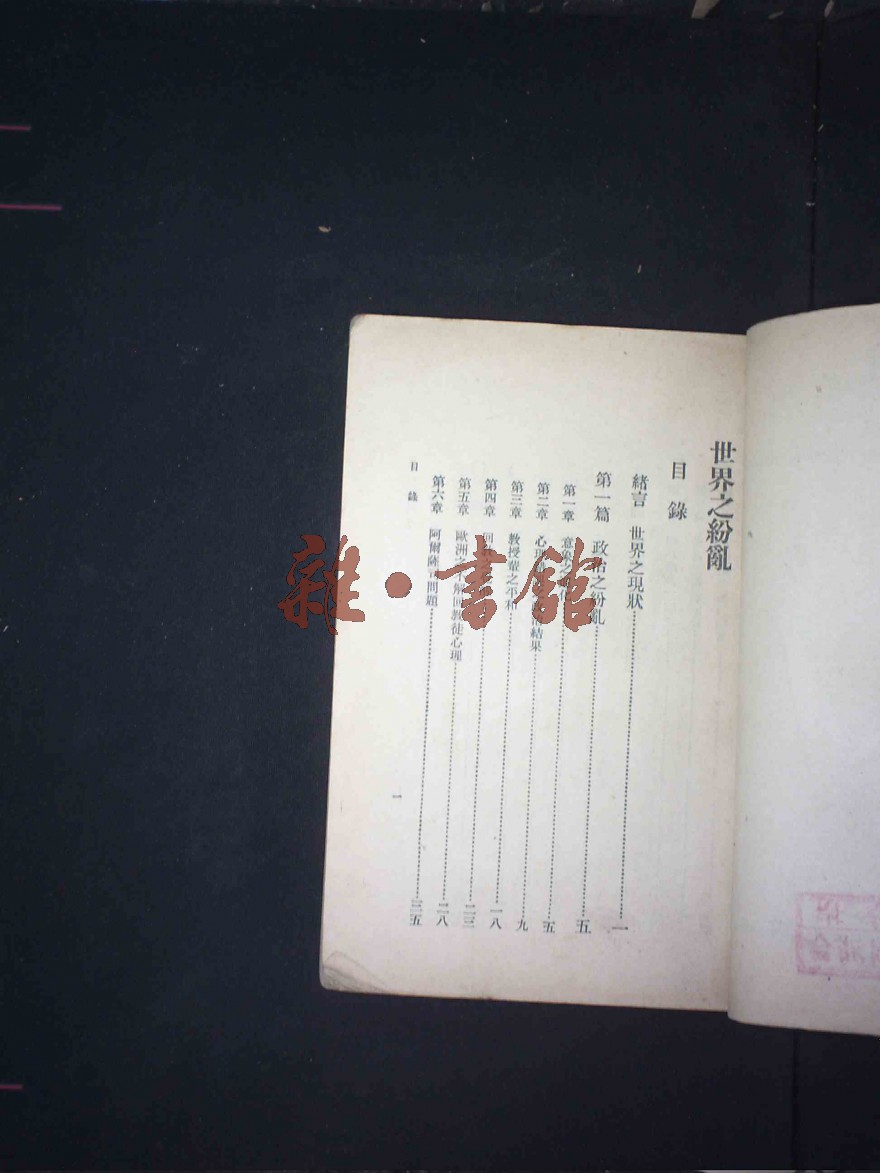 世界之紛亂
目錄
緒言 世界之現狀……一
第一篇 政治之紛亂……五
第一章 意象之……五
第二章 心理……結果……九
第三章 教授輩之平和……一八
第四章 回……二三
第五章 歐洲之不解回教徒心理……二八
第六章 阿爾薩……問題……三五
目錄
一
雜·書館